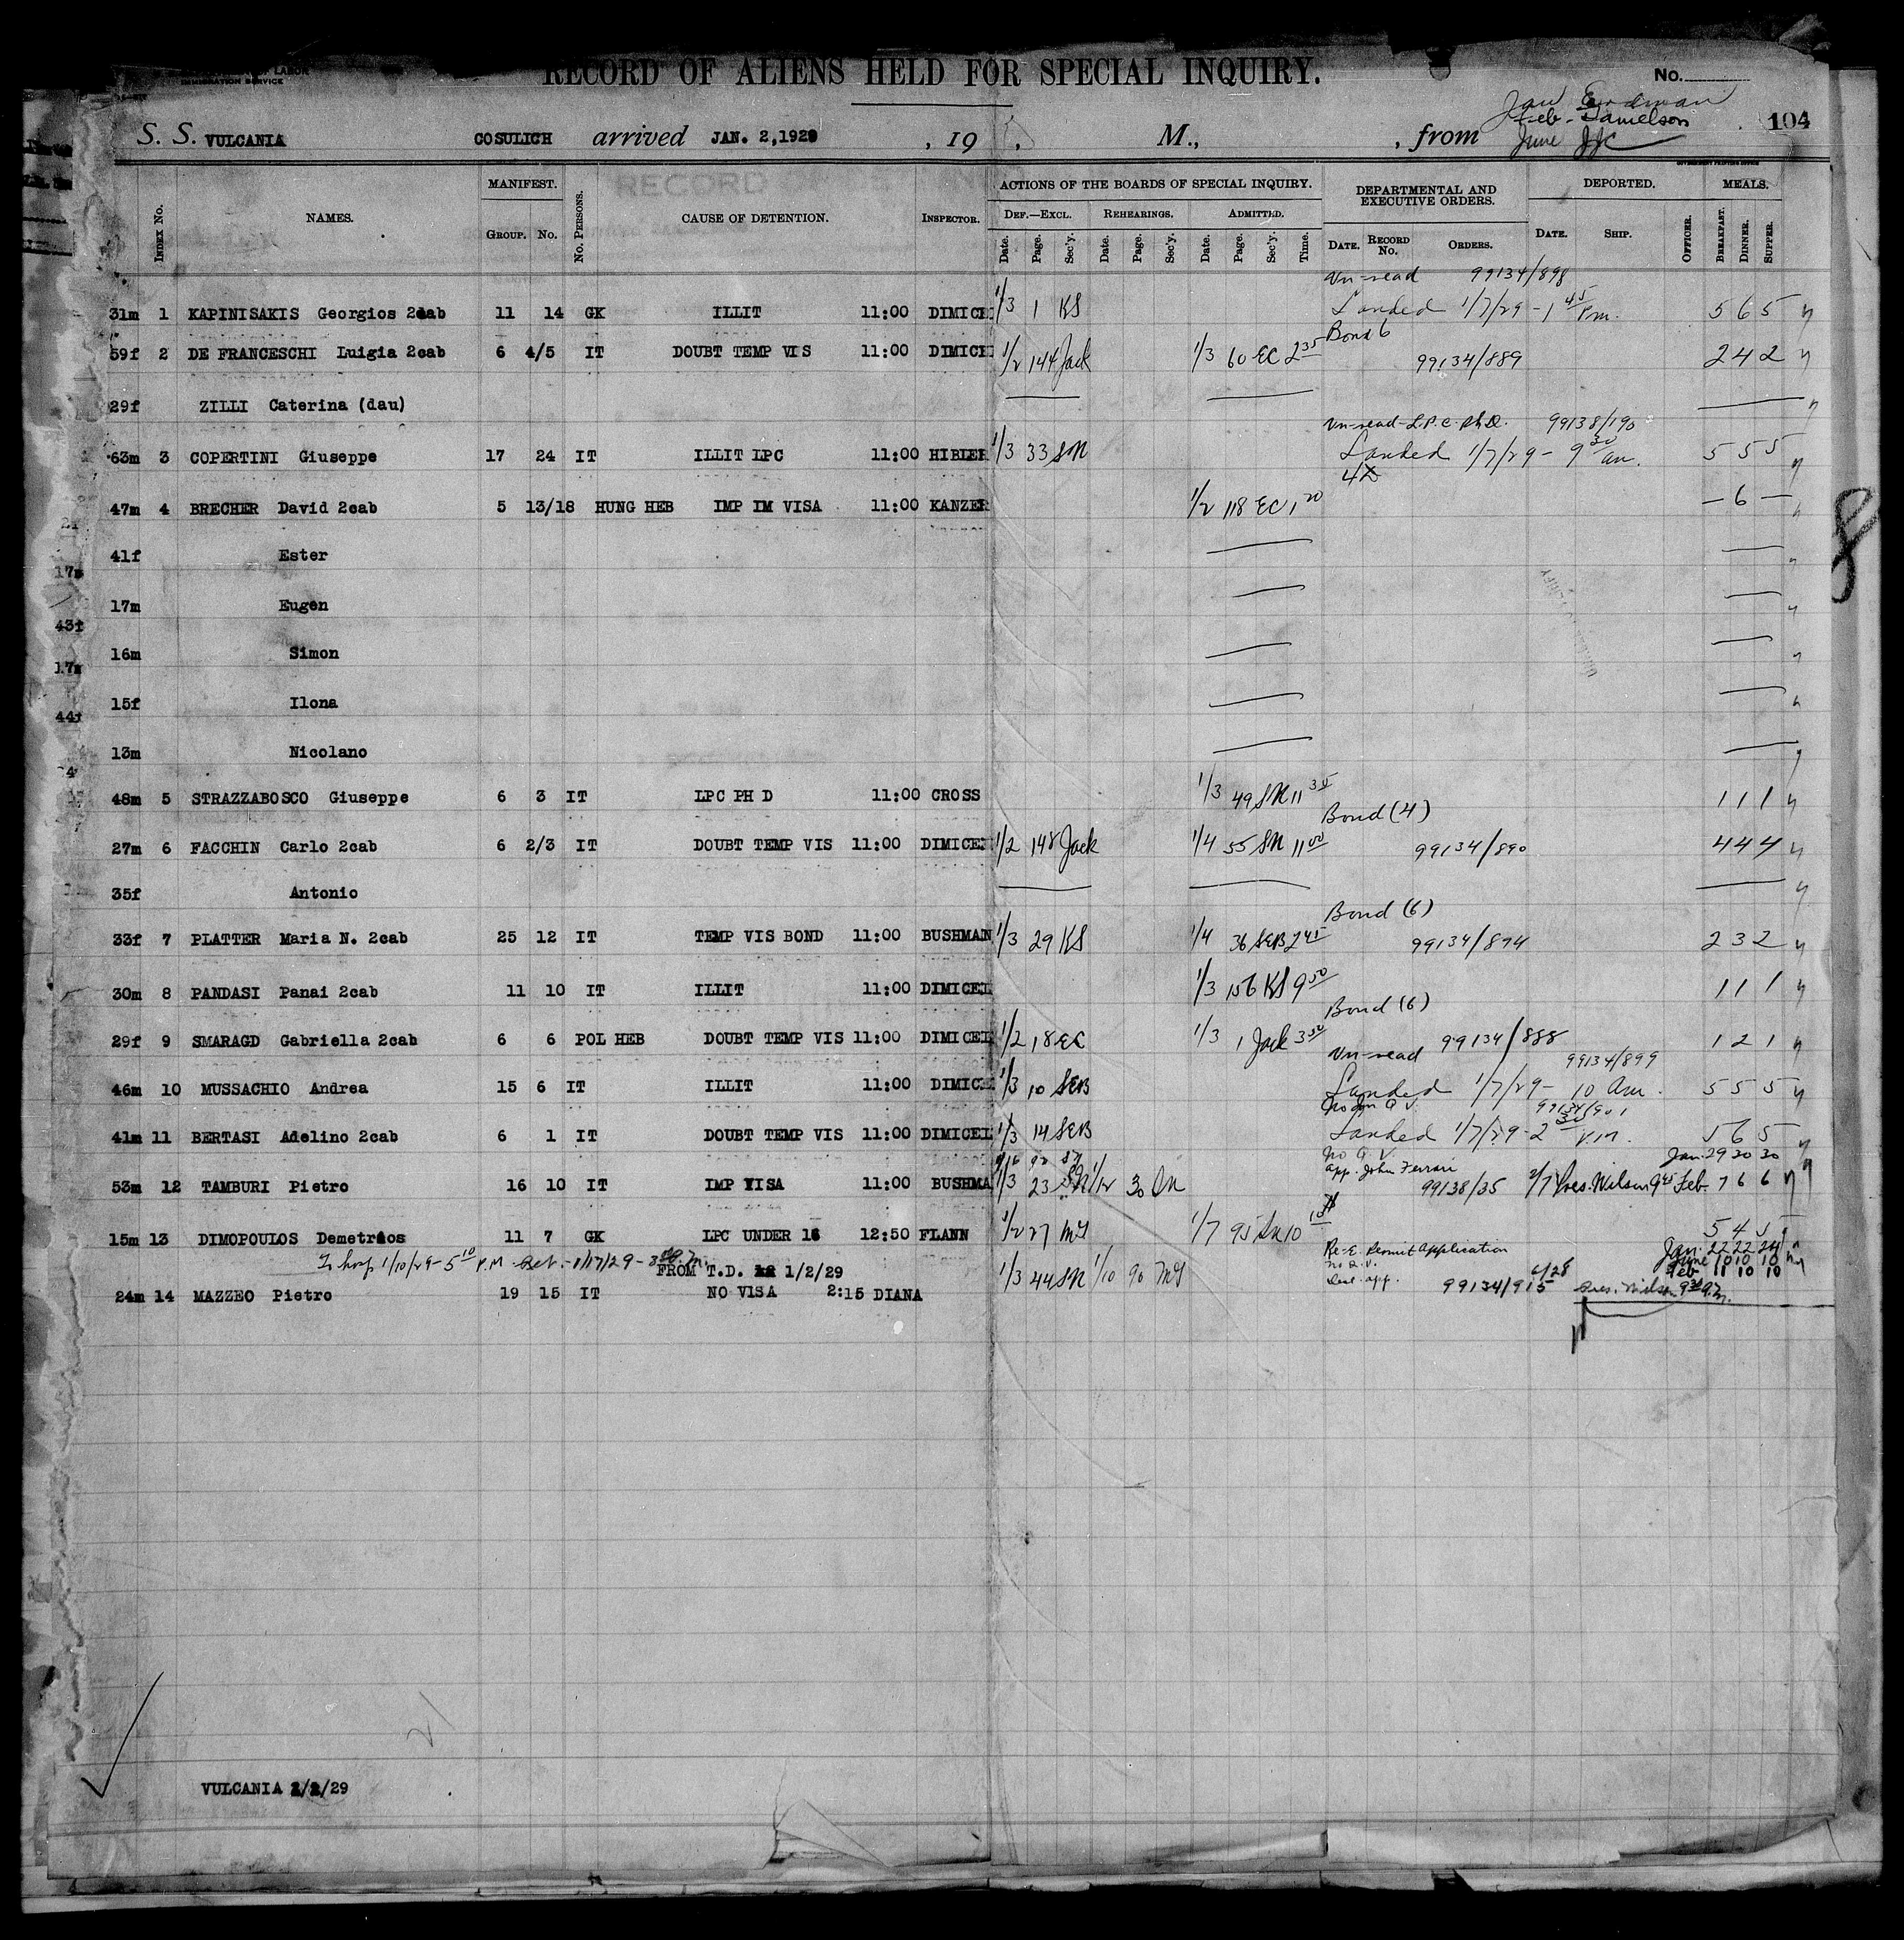 IMMIGRATION SERVICE
RECORD OF ALIENS HELD FOR SPECIAL INQUIRY.
No.
Jan Erdman
Feb-Danielson
June JJC
104
S. S. VULCANIA COSULICH arrived JAN. 2,1929 , 19 , M., , from
GOVERNMENT PRINTING OFFICE
INDEX No. NAMES. MANIFEST. GROUP. No. No. PERSONS. CAUSE OF DETENTION. INSPECTOR. ACTIONS OF THE BOARDS OF SPECIAL INQUIRY. DEF.—EXCL. Date. Page. Sec'y. REHEARINGS. Date. Page. Sec'y. ADMITTED. Date. Page. Sec'y. Time. DEPARTMENTAL AND EXECUTIVE ORDERS. DATE. RECORD No. ORDERS. DEPORTED. DATE. SHIP. OFFICER. MEALS. BREAKFAST. DINNER. SUPPER.
Un-read 99134/898
31m 1 KAPINISAKIS Georgios 2cab 11 14 GK ILLIT 11:00 DIMICE 1/3 1 KS Landed 1/7/29 - 1 45 Pm. 5 6 5
Bond 6
59f 2 DE FRANCESCHI Luigia 2cab 6 4/5 IT DOUBT TEMP VIS 11:00 DIMICE 1/2 144 Jack 1/3 60 EC 2 35 99134/889 2 4 2
29f ZILLI Caterina (dau)
Un-read-L.P.C. Ph.D. 99138/190
63m 3 COPERTINI Giuseppe 17 24 IT ILLIT LPC 11:00 HIBLER 1/3 33 SN Landed 1/7/29 - 9 30 am. 5 5 5
47m 4 BRECHER David 2cab 5 13/18 HUNG HEB IMP IM VISA 11:00 KANZER 1/2 118 EC 1 20 — 6 —
41f Ester
17m Eugen
16m Simon
15f Ilona
13m Nicolano
48m 5 STRAZZABOSCO Giuseppe 6 3 IT LPC PH D 11:00 CROSS 1/3 49 SN 11 35 1 1 1
Bond (4)
27m 6 FACCHIN Carlo 2cab 6 2/3 IT DOUBT TEMP VIS 11:00 DIMICE 1/2 148 Jack 1/4 55 SN 11 00 99134/890 4 4 4
35f Antonio
Bond (6)
33f 7 PLATTER Maria N. 2cab 25 12 IT TEMP VIS BOND 11:00 BUSHMAN 1/3 29 KS 1/4 36 SEB 2 45 99134/894 2 3 2
30m 8 PANDASI Panai 2cab 11 10 IT ILLIT 11:00 DIMICEL 1/3 156 KS 9 50 1 1 1
Bond (6)
29f 9 SMARAGD Gabriella 2cab 6 6 POL HEB DOUBT TEMP VIS 11:00 DIMICEL 1/2 18 EC 1/3 1 Jack 3 50 99134/888 1 2 1
Un-read 99134/899
46m 10 MUSSACHIO Andrea 15 6 IT ILLIT 11:00 DIMICE 1/3 10 SEB Landed 1/7/29 - 10 Am. 5 5 5
99134/901
41m 11 BERTASI Adelino 2cab 6 1 IT DOUBT TEMP VIS 11:00 DIMICEL 1/3 14 SEB Landed 1/7/29 - 2 30 P.M. 5 6 5
no Q.V. Jan. 29 30 30
app. John Ferrari
53m 12 TAMBURI Pietro 16 10 IT IMP VISA 11:00 BUSHMA 1/3 23 SN 1/12 30 99138/35 2/7 Pres. Wilson 9 45 Feb. 7 6 6
15m 13 DIMOPOULOS Demetrios 11 7 GK LPC UNDER 16 12:50 FLANN 1/2 27 MY 1/7 95 SN 10 5 4 5
Re-E. Permit Application Jan. 22 22 24
In hosp 1/10/29 - 5 10 P.M. Ret. - 1/17/29 - 3 P.M. June 10 10 10
FROM T.D. 1/2/29 Feb 11 10 10
24m 14 MAZZEO Pietro 19 15 IT NO VISA 2:15 DIANA 1/3 44 SN 1/10 90 MY 99134/915 6/28 Pres. Wilson
VULCANIA 1/2/29